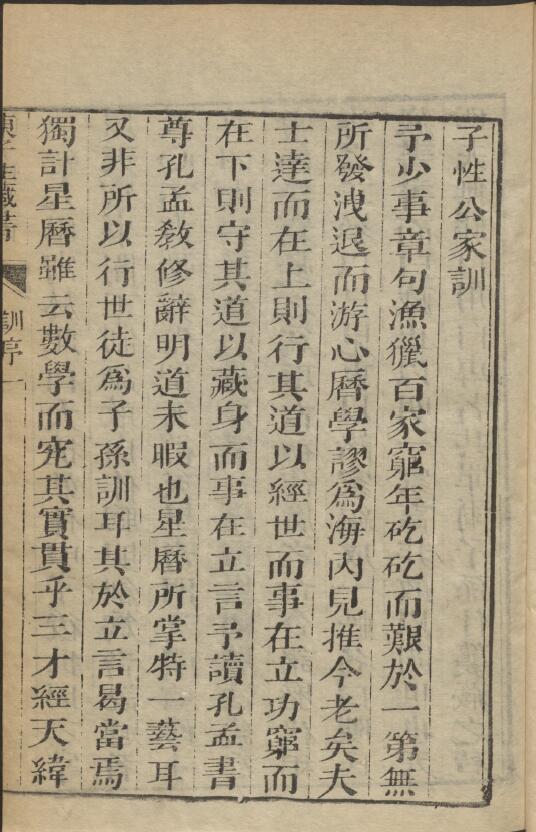 子性公家訓
予少事章句漁獵百家窮年矻矻而艱於一第無
所發洩退而游心曆學謬爲海內見推今老矣夫
士達而在上則行其道以經世而事在立功窮而
在下則守其道以藏身而事在立言予讀孔孟書
尊孔孟教修辭明道未暇也星曆所掌特一藝耳
又非所以行世徒爲子孫訓耳其於立言曷當焉
獨計星曆雖云數學而究其實貫乎三才經天緯
藏書
訓序
一